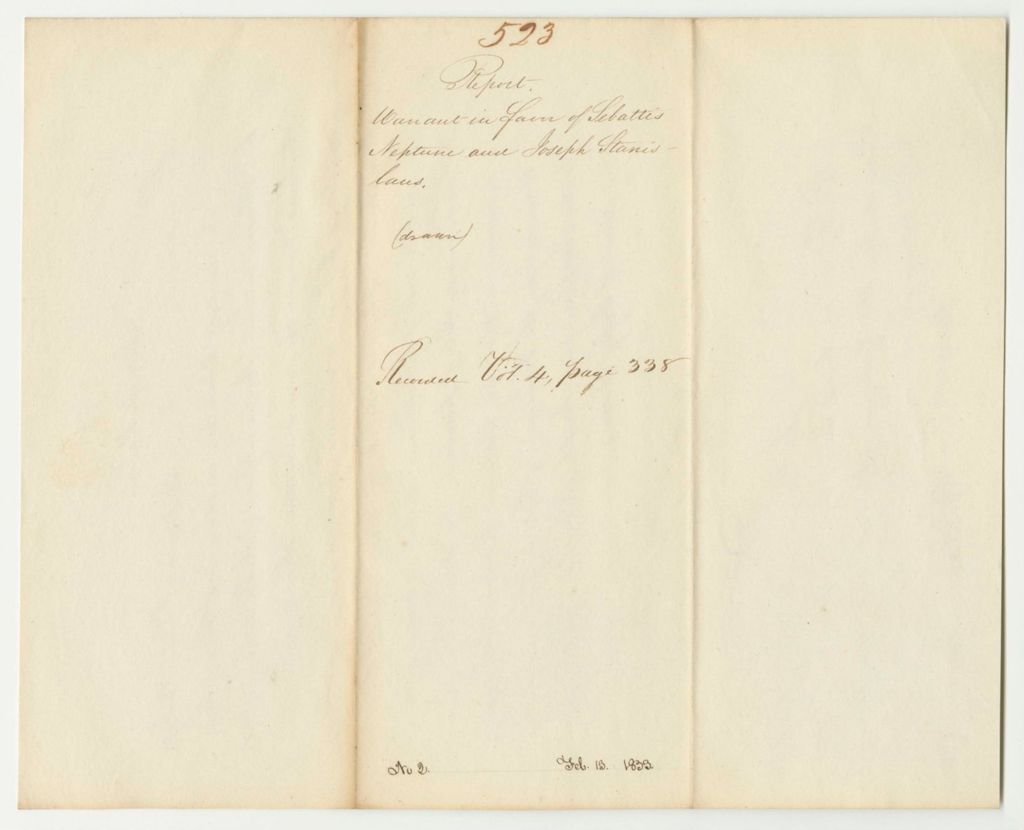 523
Report.
Warrant in favor of Sebattis
Neptune and Joseph Stanis-
laus.
(drawn)
Recorded Vol. 4, page 338
No 2. Feb. 13. 1833.